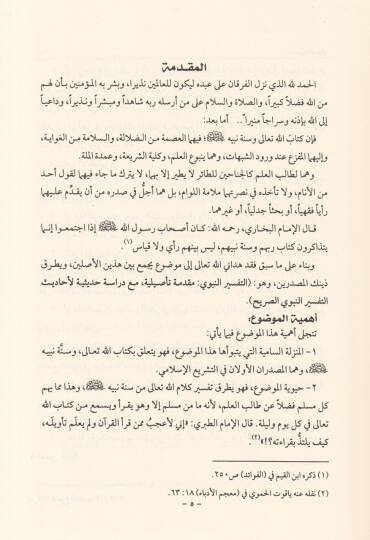 المقدمة
الحمد لله الذي نزل الفرقان على عبده ليكون للعالمين نذيرا، وبشر به المؤمنين بأن لهم
من الله فضلاً كبيراً، والصلاة والسلام على من أرسله ربه شاهداً ومبشراً ونذيراً، وداعياً
إلى الله بإذنه وسراجاً منيراً.. أما بعد:
فإن كتاب الله تعالى وسنة نبيه ﷺ؛ فيهما العصمة من الضلالة، والسلامة من الغواية،
وإليهما المفزع عند ورود الشبهات، وهما ينبوع العلم، وكلية الشريعة، وعمدة الملة.
وهما لطالب العلم كالجناحين للطائر لا يطير إلا بهما، لا يترك ما جاء فيهما لقول أحد
من الأنام، ولا تأخذه في نصرتهما ملامة اللوام، بل هما أجلُّ في صدره من أن يقدَّم عليهما
رأياً فقهياً، أو بحثاً جدلياً، أو غيرهما.
قال الإمام البخاري، رحمه الله: كان أصحاب رسول الله ﷺ إذا اجتمعوا إنما
يتذاكرون كتاب ربهم وسنة نبيهم، ليس بينهم رأي ولا قياس(١).
وبناء على ما سبق فقد هداني الله تعالى إلى موضوع يجمع بين هذين الأصلين، ويطرق
ذينك المصدرين، وهو: (التفسير النبوي: مقدمة تأصيلية، مع دراسة حديثية لأحاديث
التفسير النبوي الصريح).
أهمية الموضوع:
تتجلى أهمية هذا الموضوع فيما يأتي:
١ - المنزلة السامية التي يتبوأها هذا الموضوع، فهو يتعلق بكتاب الله تعالى، وسنَّة نبيه
ﷺ، وهما المصدران الأولان في التشريع الإسلامي.
٢ - حيوية الموضوع، فهو يطرق تفسير كلام الله تعالى من سنة نبيه ﷺ، وهذا مما يهم
كل مسلم فضلاً عن طالب العلم، لأنه ما من مسلم إلا وهو يقرأ ويسمع من كتاب الله
تعالى في كل يوم وليلة. قال الإمام الطبري: «إني لأعجبُ ممن قرأ القرآن ولم يعلَم تأويلَه،
كيف يلتذُّ بقراءته؟!»(٢).
(١) ذكره ابن القيم في (الفوائد) ص٢٥٠.
(٢) نقله عنه ياقوت الحموي في (معجم الأدباء) ١٨: ٦٣.
- ٥ -